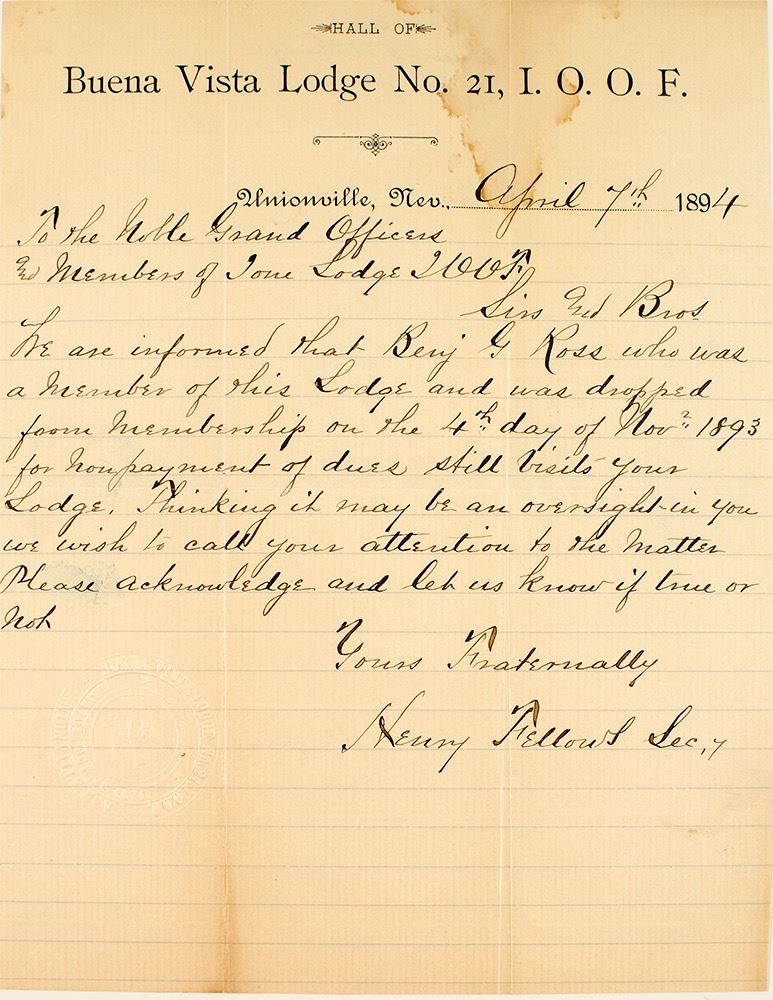 HALL OF
Buena Vista Lodge No. 21, I. O. O. F.
Unionville, Nev., April 7th 1894
To the Noble Grand Officers
and Members of Ione Lodge IOOF
Sirs and Bros
We are informed that Benj G Ross who was
a Member of this Lodge and was dropped
from Membership on the 4th day of Novr 1893
for Nonpayment of dues still Visits your
Lodge. Thinking it may be an oversight in you
we wish to call your attention to the Matter
Please acknowledge and let us know if true or
Not
Yours Fraternally
Henry Fellows Sec,y
BUENA VISTA LODGE